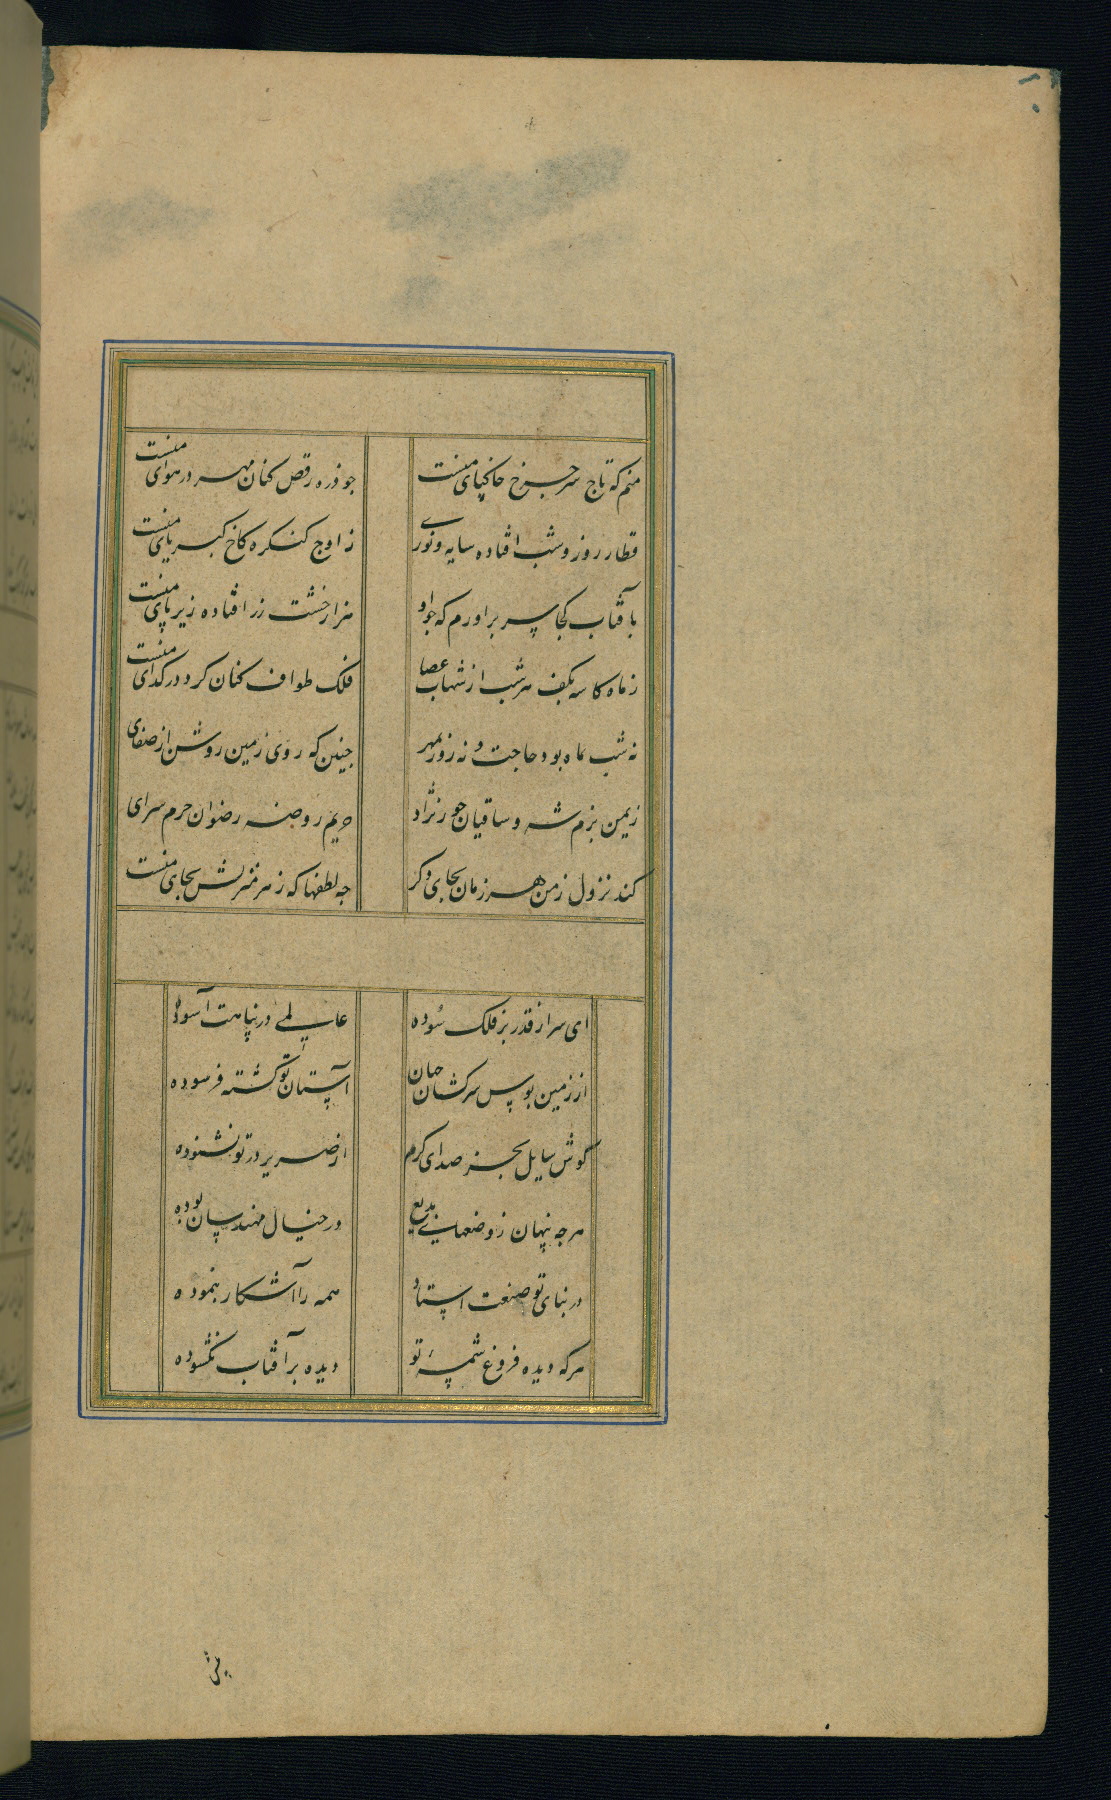 منم که تاج سر چرخ خاکپای منست
جو ذره رقص کنان مهر در هوای منست
قطار روز و شب افتاده سایه و نوری
ز اوج کنکره کاخ کبریای منست
بآفتاب کجا سر براورم که جو او
هزار خشت زر افتاده زیر پای منست
ز ماه کاسه بکف هر شب از شهاب عصا
فلک طواف کنان کرد در کدای منست
نه شب بماه بود حاجت و نه روز بمهر
جنین که روی زمین روشن از صفای
ز یمن بزم شه و ساقیان حور نژاد
حریم روضه رضوان حرم سرای
کند نزول ز من هر زمان بجای دکر
جه لطفها که ز هر منزلش بجای منست
ای سر از قدر بر فلک سوده
عالمی در پناهت آسوده
از زمین بوس سرکشان جهان
آستان تو کشته فرسوده
کوش سایل بجز صدای کرم
از صریر در تو نشنوده
هرجه پنهان ز وضعهای بدیع
در خیال مهندسان بوده
در بنای تو صنعت استاد
همه را آشکار بنموده
هرکه دیده فروغ شمسهٔ تو
دیده بر آفتاب نکشوده